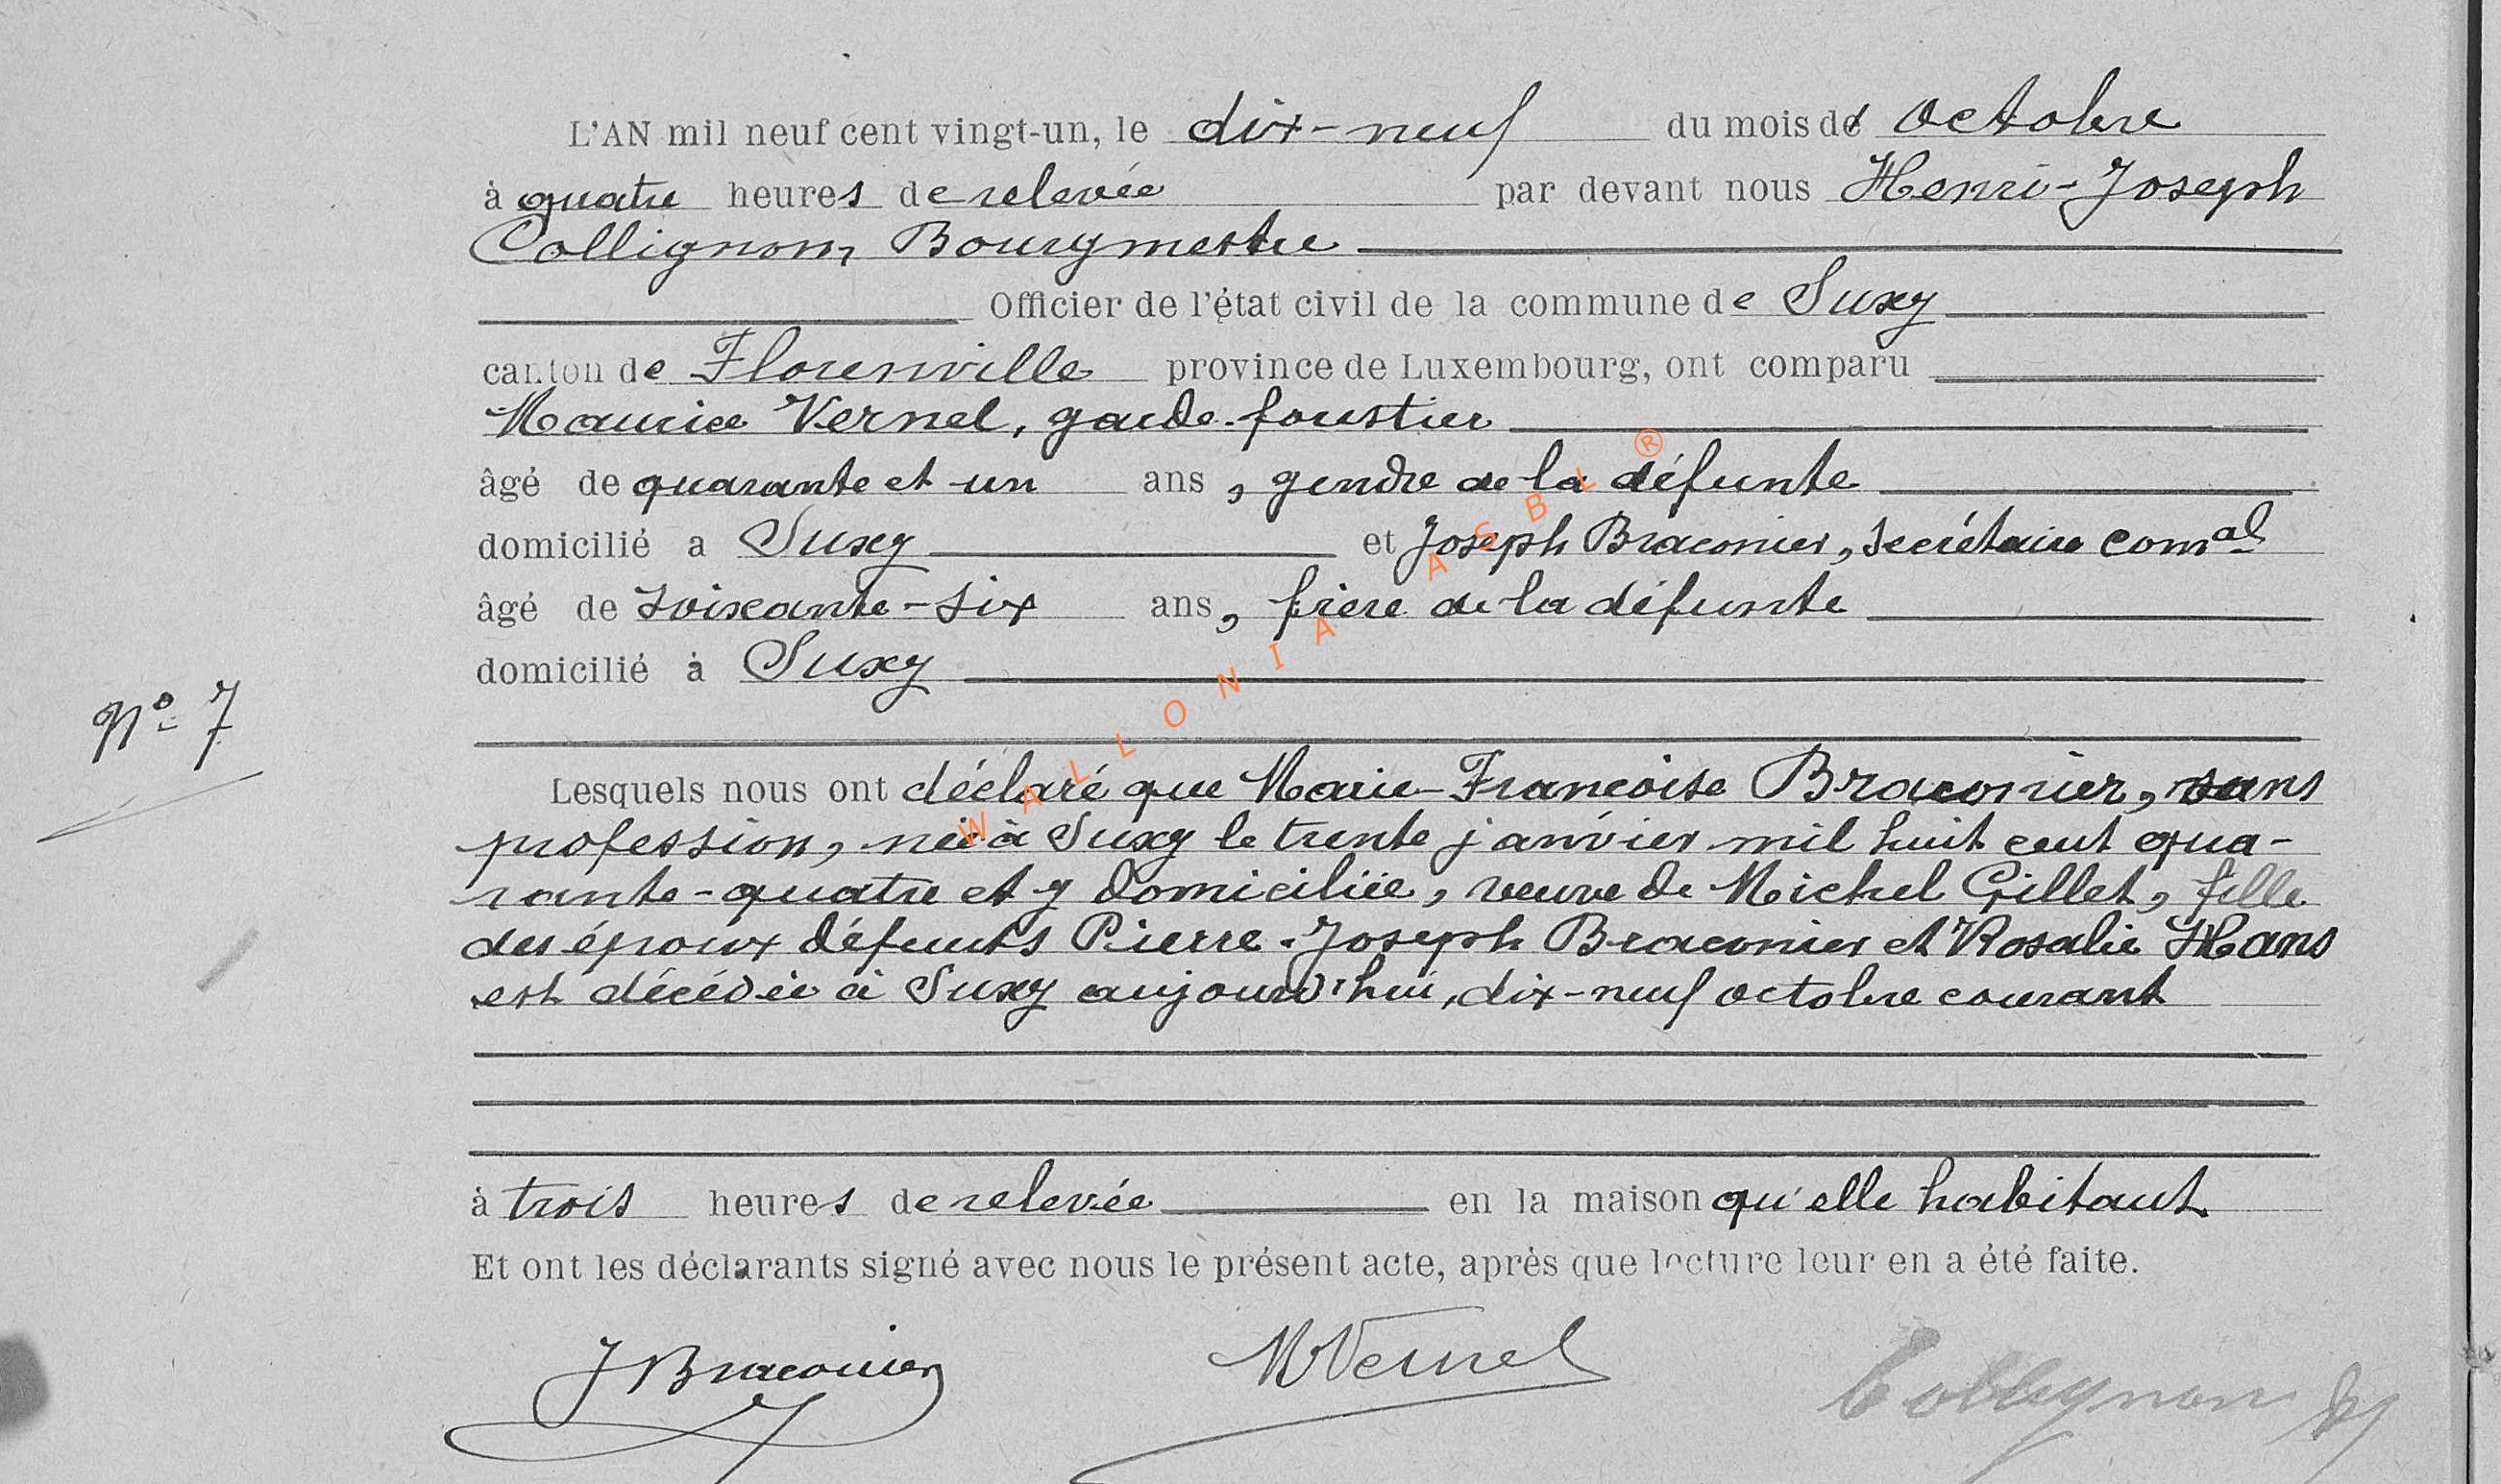 L'AN mil neuf cent vingt-un, le dix-neuf du mois de octobre
à quatre heures de relevée par devant nous Henri-Joseph
Collignon, Bourgmestre
Officier de l'état civil de la commune de Suxy
canton de Florenville province de Luxembourg, ont comparu
Maurice Vernel, garde-forestier
âgé de quarante et un ans, gendre de la défunte
domicilié a Suxy et Joseph Braconier, secrétaire comal
âgé de soixante-six ans, frère de la défunte
domicilié à Suxy
No 7
Lesquels nous ont déclaré que Marie-Françoise Braconier, sans
profession, née à Suxy le trente janvier mil huit cent qua-
rante-quatre et y domiciliée, veuve de Michel Gillet, fille
des époux défunts Pierre-Joseph Braconier et Rosalie Hans
est décédée à Suxy aujourd'hui, dix-neuf octobre courant
à trois heures de relevée en la maison qu'elle habitait
Et ont les déclarants signé avec nous le présent acte, après que lecture leur en a été faite.
J Braconier MVernel Collignon
WALLONIA ASBL ®